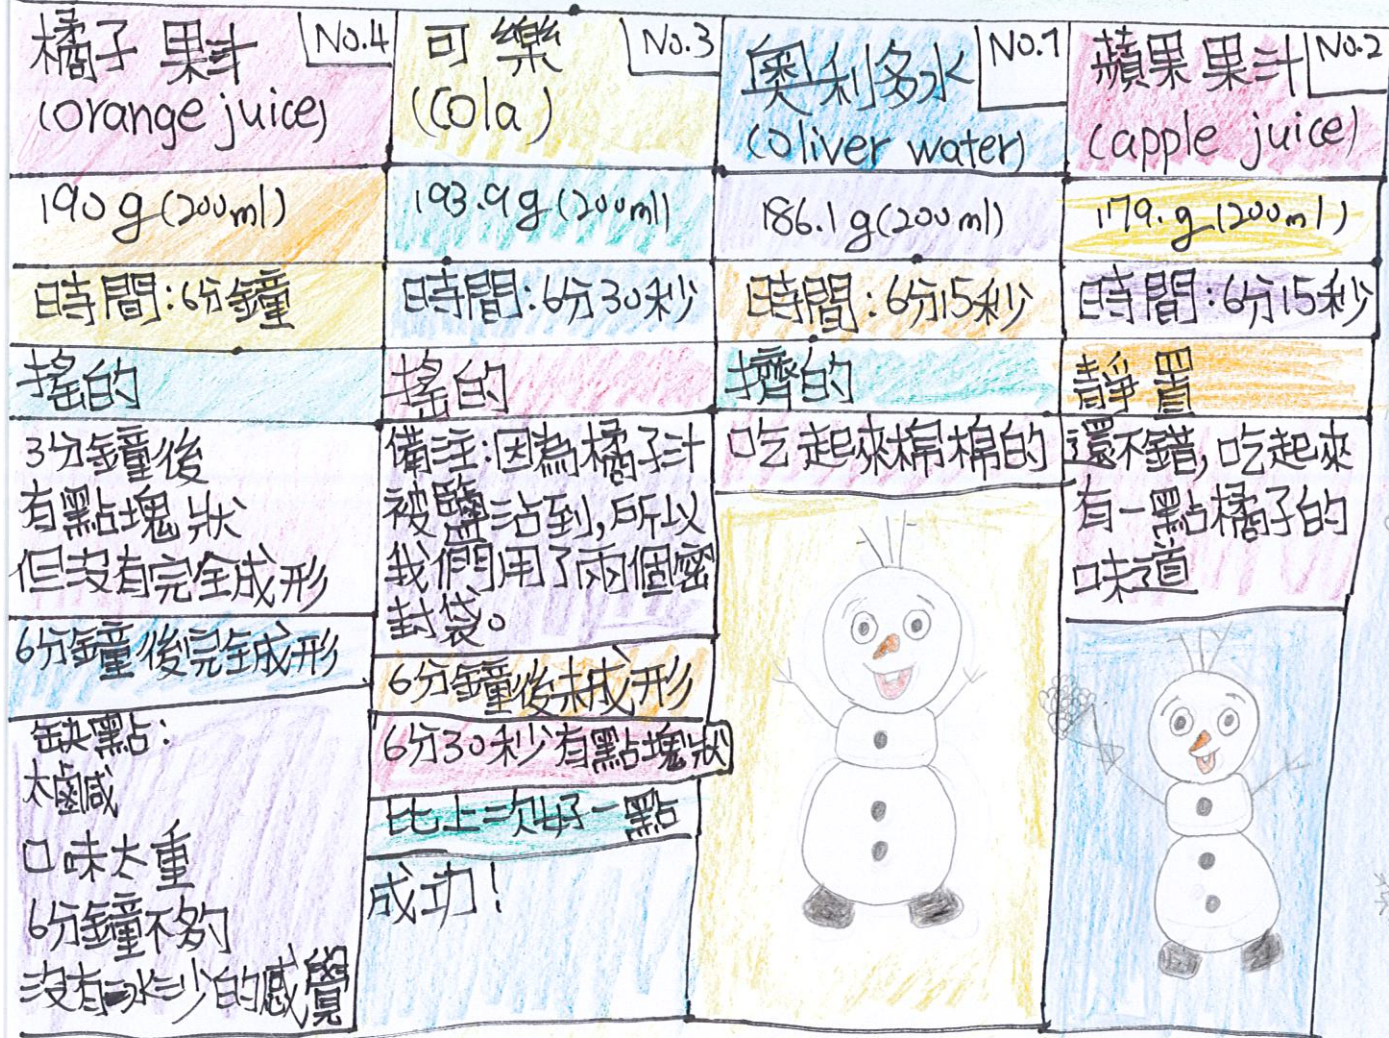 橘子 果汁
No.4
(orange juice)
190g(200ml)
時間:6分鐘
搖的
3分鐘後
有點塊狀
但沒有完全成形
6分鐘後完全成形
缺點:
太鹹
口味太重
6分鐘不夠
沒有冰沙的感覺
可樂
No.3
(Cola)
193.9g(200ml)
時間:6分30秒
搖的
備注:因為橘子汁
被鹽沾到,所以
我們用了兩個密
封袋。
6分鐘後未成形
6分30秒有點塊狀
比上次好一點
成功!
奧利多水
No.1
(Oliver water)
186.1g(200ml)
時間:6分15秒
擠的
吃起來棉棉的
蘋果果汁
No.2
(apple juice)
179.g(200ml)
時間:6分15秒
靜置
還不錯,吃起來
有一點橘子的
味道